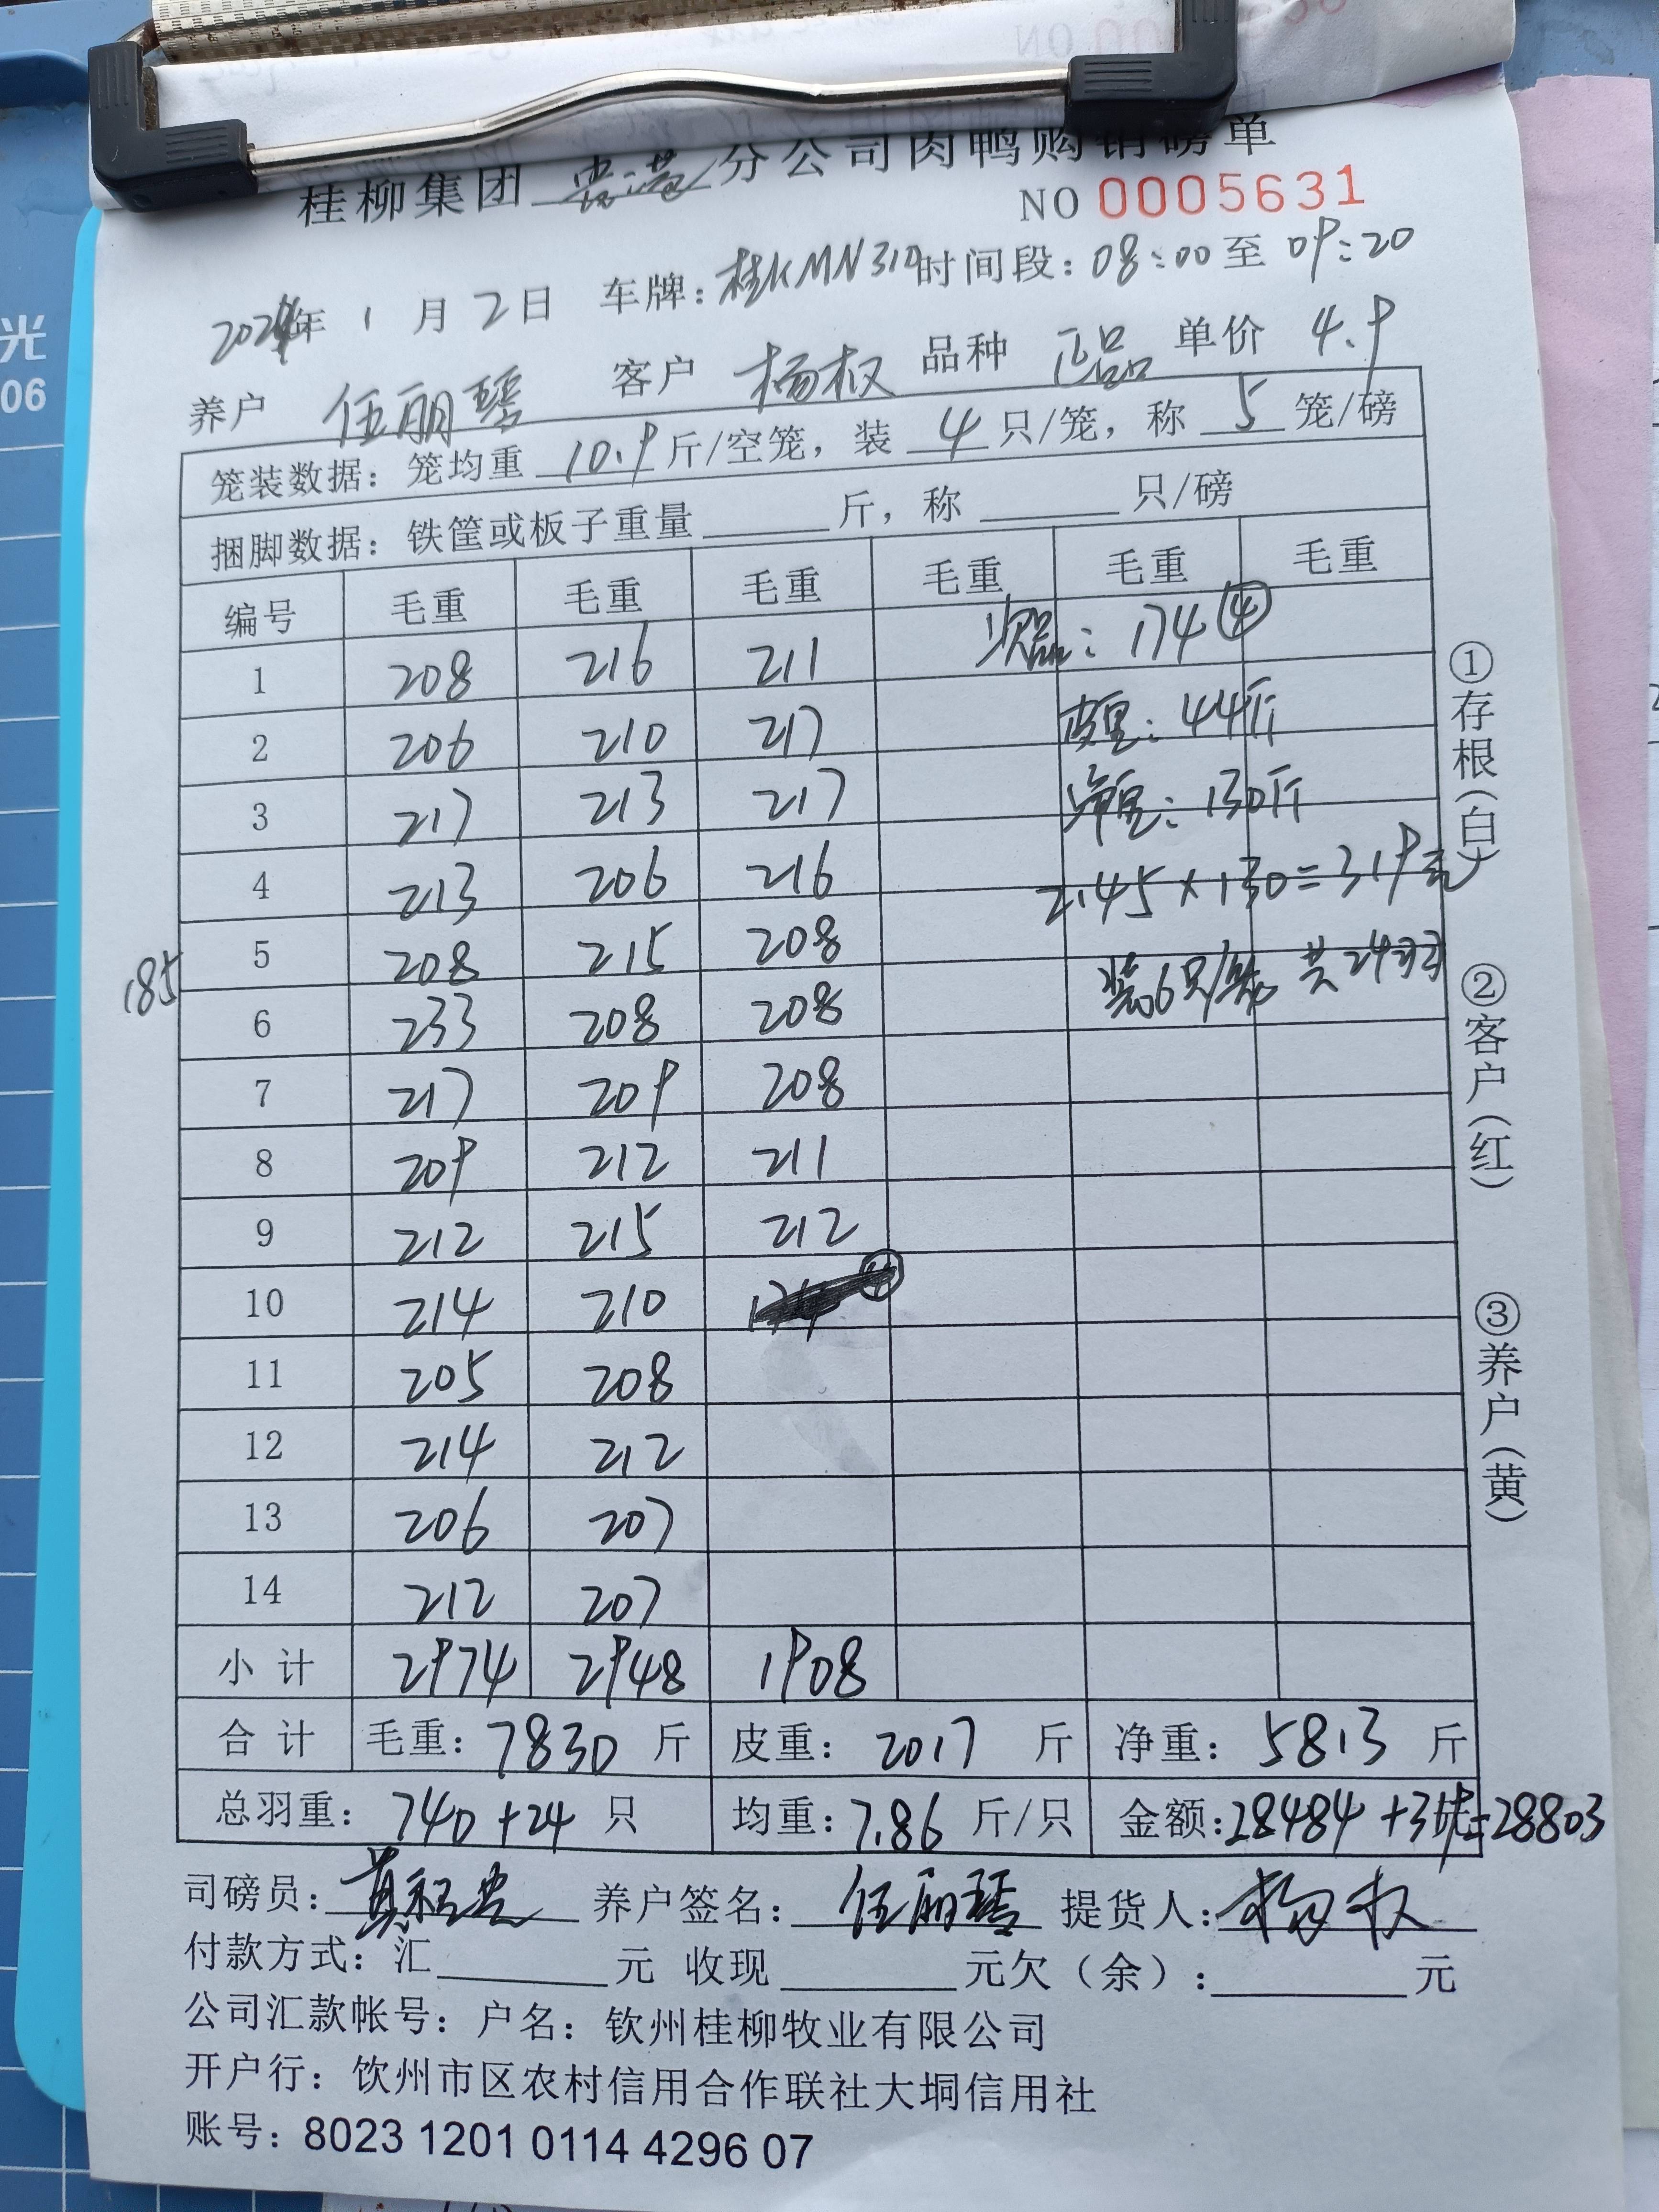 桂柳集团 贵港 分公司肉鸭购销磅单
NO 0005631
2024年 1 月 2 日 车牌：桂KMN310 时间段：08:00 至 09:20
养户 任丽琴 客户 杨权 品种 正品 单价 4.9
笼装数据：笼均重 10.9 斤/空笼，装 4 只/笼，称 5 笼/磅
捆脚数据：铁筐或板子重量 斤，称 只/磅
编号 毛重 毛重 毛重 毛重 毛重 毛重
1 208 216 211 次品：174 ④
2 206 210 217 皮重：44斤
3 217 213 217 净重：130斤
4 213 206 216 2.45×130=319元
5 208 215 208 装6只/笼 共24只
185
6 233 208 208
7 217 209 208
8 209 212 211
9 212 215 212
10 214 210 ④
11 205 208
12 214 212
13 206 207
14 212 207
小计 2974 2948 1908
合计 毛重：7830 斤 皮重：2017 斤 净重：5813 斤
总羽重：740+24 只 均重：7.86 斤/只 金额：28484+319=28803
司磅员： 养户签名：任丽琴 提货人：杨权
付款方式：汇 元 收现 元欠（余）： 元
公司汇款帐号：户名：钦州桂柳牧业有限公司
开户行：钦州市区农村信用合作联社大垌信用社
账号：8023 1201 0114 4296 07
①存根（白）
②客户（红）
③养户（黄）
光
06